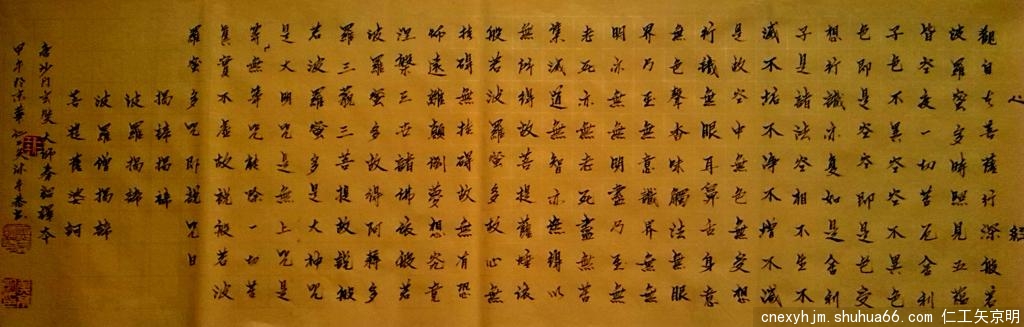 心經
觀自在菩薩行深般若
波羅蜜多時照見五蘊
皆空度一切苦厄舍利
子色不異空空不異色
色即是空空即是色受
想行識亦復如是舍利
子是諸法空相不生不
滅不垢不淨不增不減
是故空中無色無受想
行識無眼耳鼻舌身意
無色聲香味觸法無眼
界乃至無意識界無無
明亦無無明盡乃至無
老死亦無老死盡無苦
集滅道無智亦無得以
無所得故菩提薩埵依
般若波羅蜜多故心無
挂礙無挂礙故無有恐
怖遠離顛倒夢想究竟
涅槃三世諸佛依般若
波羅蜜多故得阿耨多
羅三藐三菩提故說般
若波羅蜜多是大神咒
是大明咒是無上咒是
等無等咒能除一切苦
真實不虛故說般若波
羅蜜多咒即說咒曰
揭諦揭諦
波羅揭諦
波羅僧揭諦
菩提薩婆訶
唐沙門玄奘大師奉詔譯本
甲午於京華沐手恭書
cnexyhjm.shuhua66.com 仁工矢京明